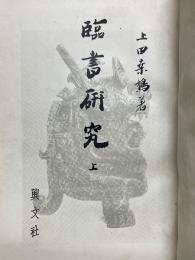 上田桑鳩著
臨書研究
上
興文社